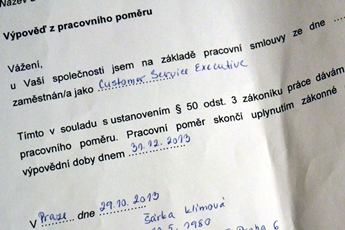 Výpověď z pracovního poměru
Vážení,
u Vaší společnosti jsem na základě pracovní smlouvy ze dne ....
zaměstnán/a jako Customer Service Executive
Tímto v souladu s ustanovením § 50 odst. 3 zákoníku práce dávám
pracovního poměru. Pracovní poměr skončí uplynutím zákonné
výpovědní doby dnem 31.12.2013
V Praze dne 29.10.2013
Šárka Klímová
5. 1980
Praha 6